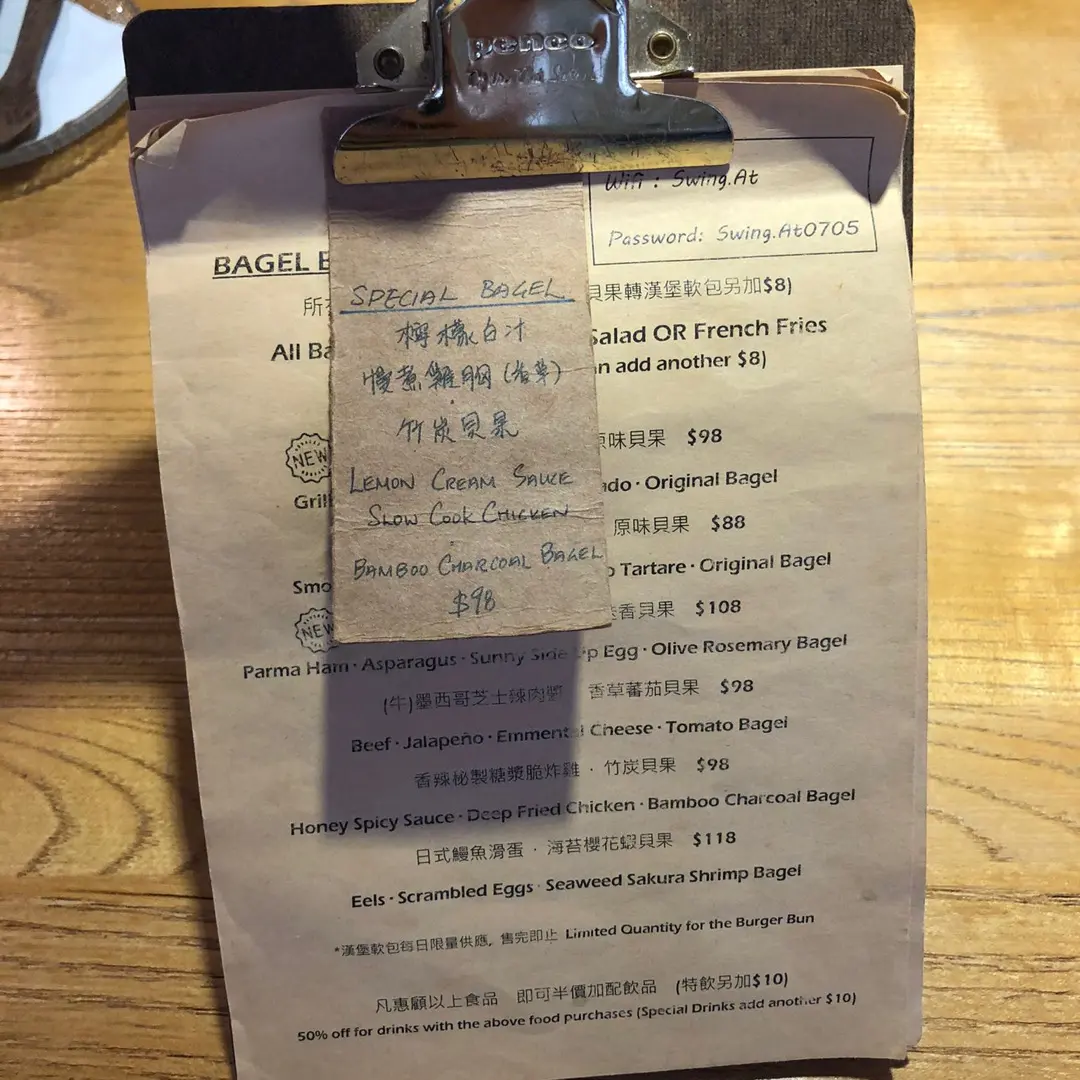 penco
Wifi : Swing.At
Password: Swing.At0705
BAGEL
貝果轉漢堡軟包另加$8)
All
Salad OR French Fries
add another $8)
SPECIAL BAGEL
檸檬白汁
慢煮雞胸(香草)
竹炭貝果
LEMON CREAM SAUCE
SLOW COOK CHICKEN
BAMBOO CHARCOAL BAGEL
$98
NEW
原味貝果 $98
Original Bagel
原味貝果 $88
Tartare · Original Bagel
NEW
香貝果 $108
Parma Ham · Asparagus · Sunny Side Up Egg · Olive Rosemary Bagel
(牛)墨西哥芝士辣肉醬 香草蕃茄貝果 $98
Beef · Jalapeño · Emmental Cheese · Tomato Bagel
香辣秘製糖漿脆炸雞 · 竹炭貝果 $98
Honey Spicy Sauce · Deep Fried Chicken · Bamboo Charcoal Bagel
日式鰻魚滑蛋 · 海苔櫻花蝦貝果 $118
Eels · Scrambled Eggs · Seaweed Sakura Shrimp Bagel
*漢堡軟包每日限量供應, 售完即止 Limited Quantity for the Burger Bun
凡惠顧以上食品 即可半價加配飲品 (特飲另加$10)
50% off for drinks with the above food purchases (Special Drinks add another $10)